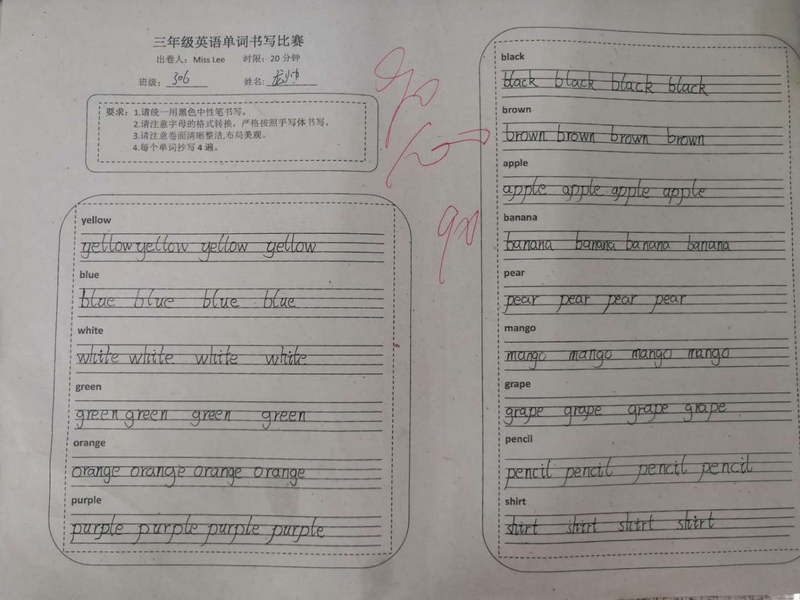 三年级英语单词书写比赛
出卷人：Miss Lee 时限：20 分钟
班级：306 姓名：
要求：1.请统一用黑色中性笔书写。
2.请注意字母的格式转换。严格按照手写体书写。
3.请注意卷面清晰整洁,布局美观。
4.每个单词抄写 4 遍。
yellow
yellow yellow yellow yellow
blue
blue blue blue blue
white
white white white white
green
green green green green
orange
orange orange orange orange
purple
purple purple purple purple
black
black black black black
brown
brown brown brown brown
apple
apple apple apple apple
banana
banana banana banana banana
pear
pear pear pear pear
mango
mango mango mango mango
grape
grape grape grape grape
pencil
pencil pencil pencil pencil
shirt
shirt shirt shirt shirt